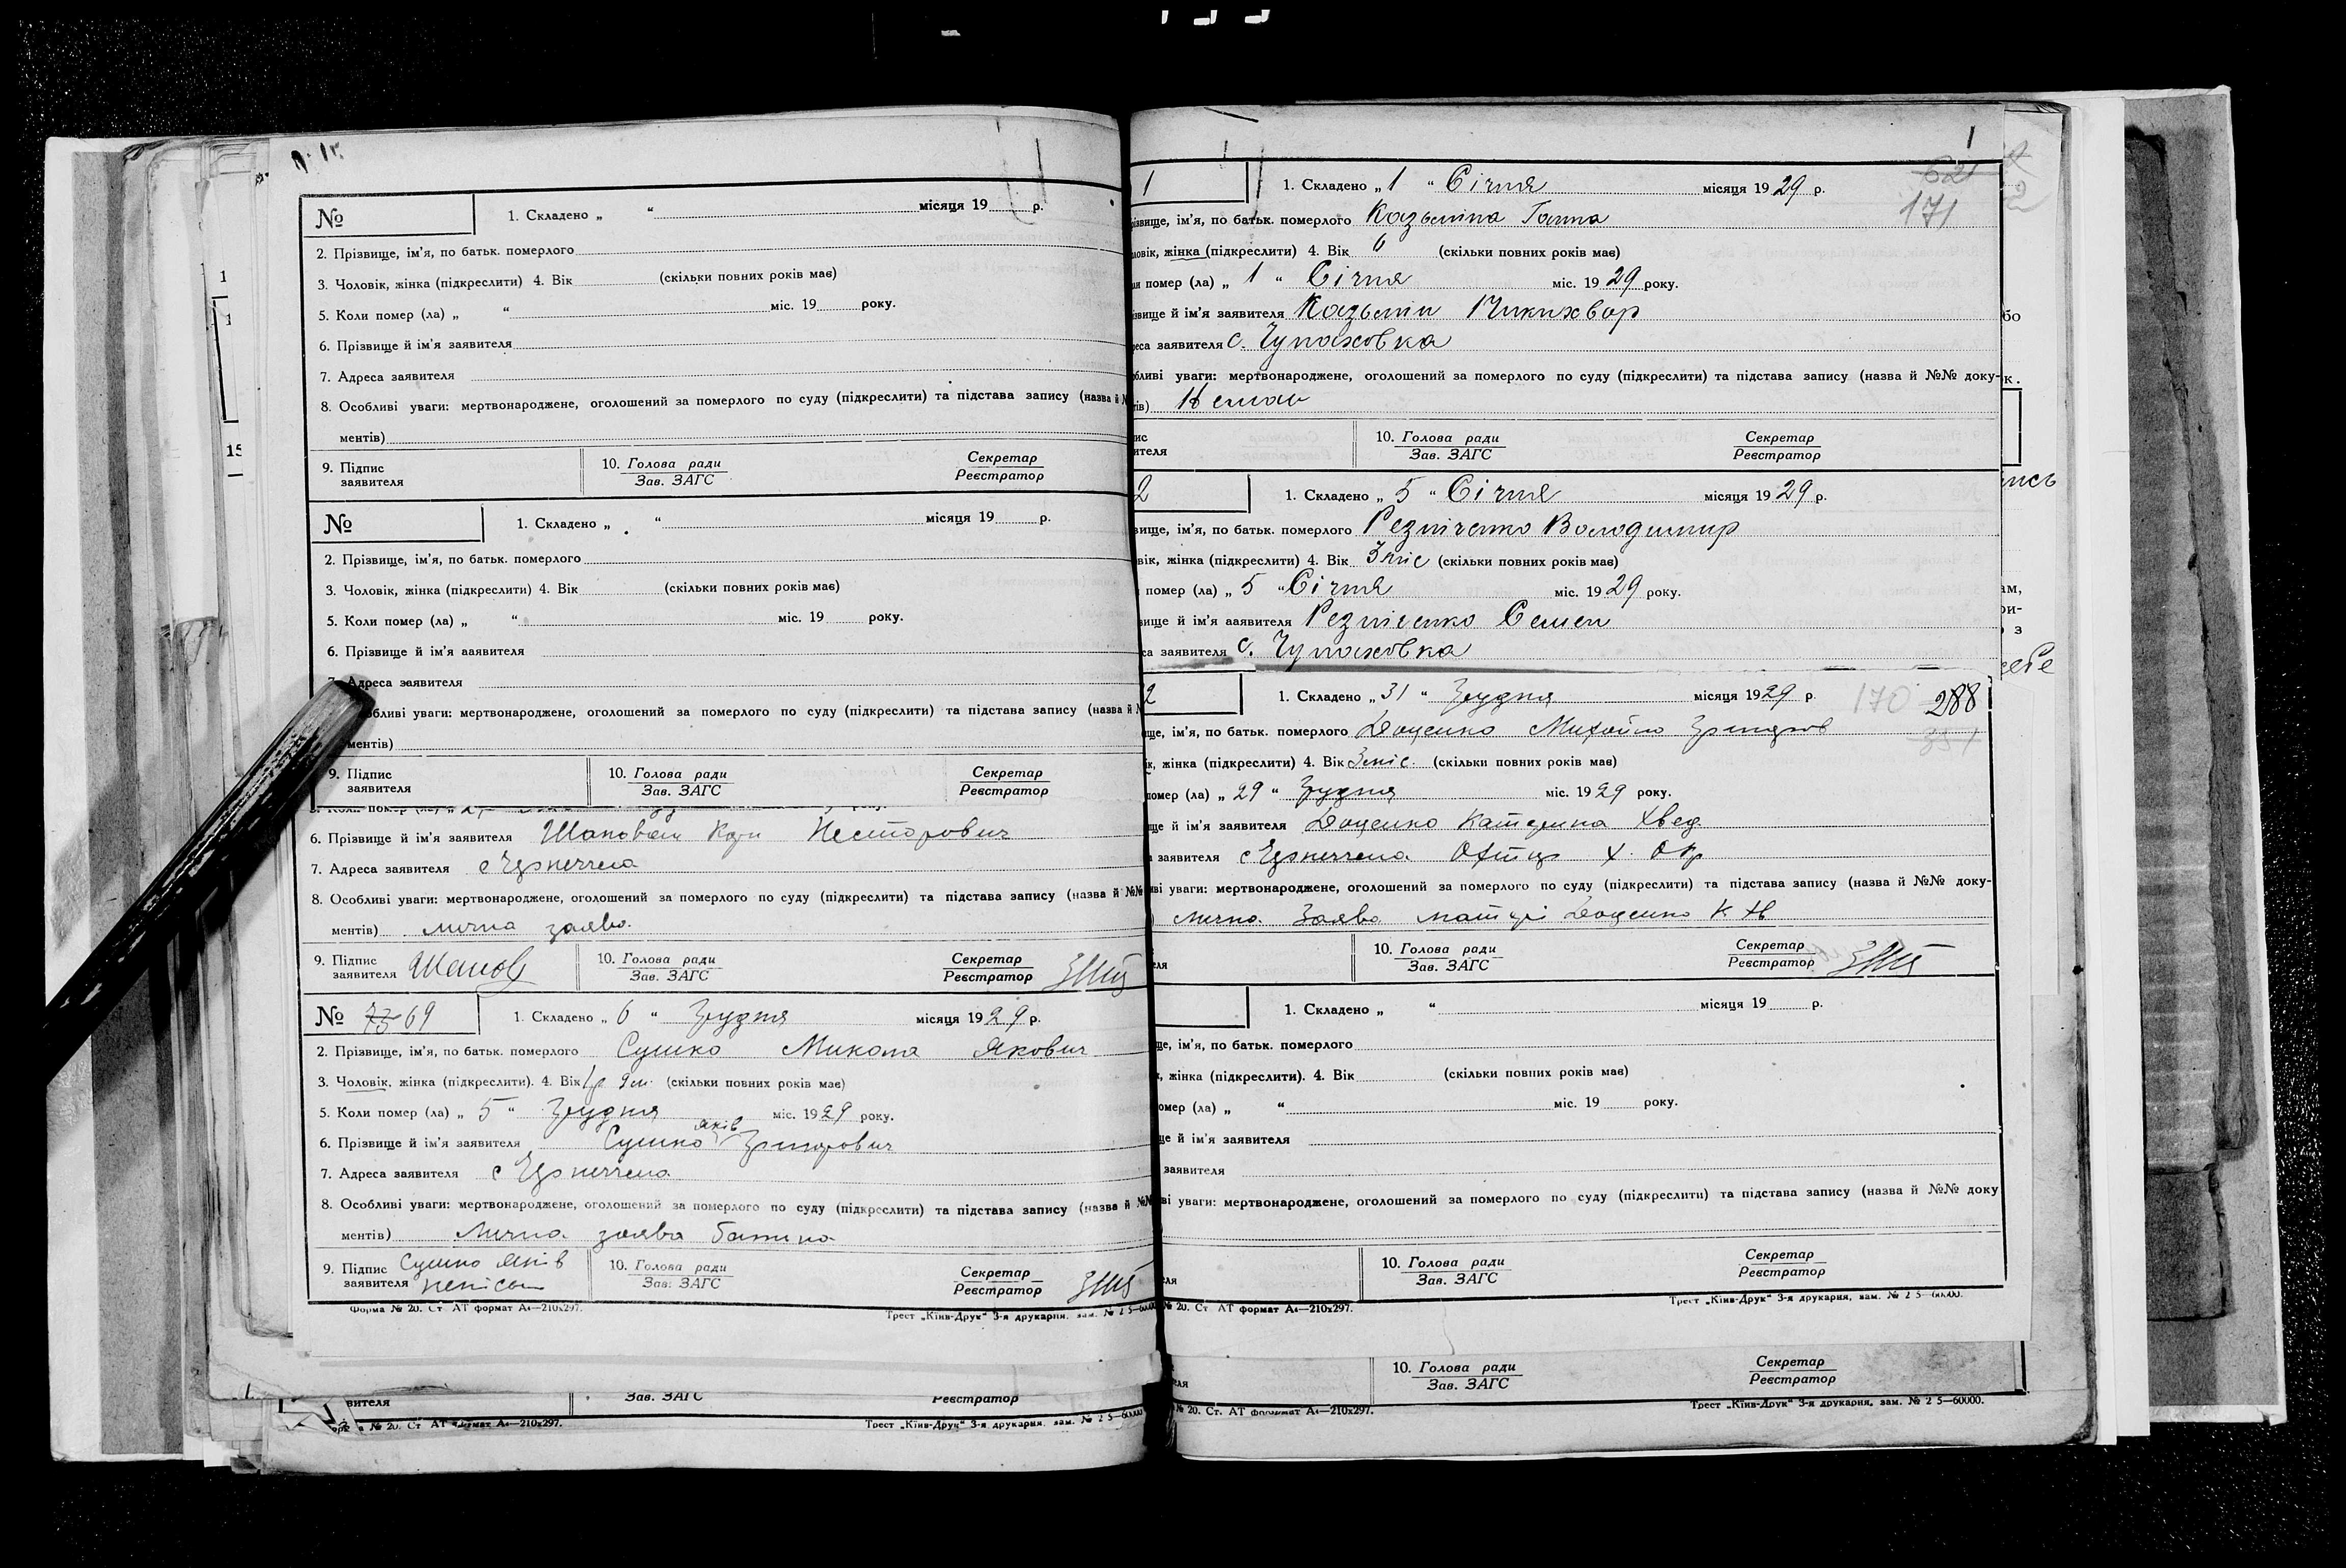 № 1. Складено „ “ місяця 19 р.
2. Прізвище, ім'я, по батьк. померлого
3. Чоловік, жінка (підкреслити) 4. Вік (скільки повних років має)
5. Коли помер (ла) „ “ міс. 19 року.
6. Прізвище й ім'я заявителя
7. Адреса заявителя
8. Особливі уваги: мертвонароджене, оголошений за померлого по суду (підкреслити) та підстава запису (назва й
ментів)
9. Підпис заявителя 10. Голова ради Зав. ЗАГС Секретар Реєстратор
№ 1. Складено „ “ місяця 19 р.
2. Прізвище, ім'я, по батьк. померлого
3. Чоловік, жінка (підкреслити) 4. Вік (скільки повних років має)
5. Коли помер (ла) „ “ міс. 19 року.
6. Прізвище й ім'я ааявителя
7. Адреса заявителя
обливі уваги: мертвонароджене, оголошений за померлого по суду (підкреслити) та підстава запису (назва й
ментів)
9. Підпис заявителя 10. Голова ради Зав. ЗАГС Секретар Реєстратор
6. Прізвище й ім'я заявителя Шаповал Несторович
7. Адреса заявителя с
8. Особливі уваги: мертвонароджене, оголошений за померлого по суду (підкреслити) та підстава запису (назва й №№
ментів) лична заява
9. Підпис заявителя Шапов 10. Голова ради Зав. ЗАГС Секретар Реєстратор
№ 73 69 1. Складено „ 6 “ Грудня місяця 1929 р.
2. Прізвище, ім'я, по батьк. померлого Сушко Микола Якович
3. Чоловік, жінка (підкреслити). 4. Вік (скільки повних років має)
5. Коли помер (ла) „ 5 “ Грудня міс. 1929 року.
6. Прізвище й ім'я заявителя Сушко Яків Григорович
7. Адреса заявителя с
8. Особливі уваги: мертвонароджене, оголошений за померлого по суду (підкреслити) та підстава запису (назва й №№
ментів) Лична заява батька
9. Підпис заявителя Сушко Яків непісьм 10. Голова ради Зав. ЗАГС Секретар Реєстратор
Форма № 20. Ст. АТ формат А4—210х297. Трест „Київ-Друк“ 3-я друкарня, зам. № 2 5—60000
вителя Зав. ЗАГС Реєстратор
№ 20. Ст. АТ формат А4—210х297. Трест „Київ-Друк“ 3-я друкарня, зам. № 2 5—60000
1
1 1. Складено „ 1 “ Січня місяця 1929 р. 171
ізвище, ім'я, по батьк. померлого Казьміна Ганна
ловік, жінка (підкреслити) 4. Вік 6 (скільки повних років має)
ли помер (ла) „ 1 “ Січня міс. 1929 року.
ізвище й ім'я заявителя Казьмін Никихвор
реса заявителя с. Чупаховка
бливі уваги: мертвонароджене, оголошений за померлого по суду (підкреслити) та підстава запису (назва й №№ доку-
тів) Немає
ис ителя 10. Голова ради Зав. ЗАГС Секретар Реєстратор
2 1. Складено „ 5 “ Січня місяця 1929 р.
вище, ім'я, по батьк. померлого Резніченко Володимир
вік, жінка (підкреслити) 4. Вік 3 міс (скільки повних років має)
помер (ла) „ 5 “ Січня міс. 1929 року.
вище й ім'я ааявителя Резніченко Семен
са заявителя с. Чупаховка
2 1. Складено „ 31 “ Грудня місяця 1929 р. 170 288
ще, ім'я, по батьк. померлого Доценко Михайло Григоров
к, жінка (підкреслити) 4. Вік 3 міс. (скільки повних років має)
омер (ла) „ 29 “ Грудня міс. 1929 року.
ще й ім'я заявителя Доценко Катерина Хвед
заявителя с
ві уваги: мертвонароджене, оголошений за померлого по суду (підкреслити) та підстава запису (назва й №№ доку-
лична Заява матері Доценко К Хв
еля 10. Голова ради Зав. ЗАГС Секретар Реєстратор
1. Складено „ “ місяця 19 р.
ще, ім'я, по батьк. померлого
, жінка (підкреслити). 4. Вік (скільки повних років має)
омер (ла) „ “ міс. 19 року.
ще й ім'я заявителя
заявителя
ві уваги: мертвонароджене, оголошений за померлого по суду (підкреслити) та підстава запису (назва й №№ доку
еля 10. Голова ради Зав. ЗАГС Секретар Реєстратор
№ 20. Ст. АТ формат А4—210х297. Трест „Київ-Друк“ 3-я друкарня, зам. № 2 5—60000.
еля 10. Голова ради Зав. ЗАГС Секретар Реєстратор
№ 20. Ст. АТ формат А4—210х297. Трест „Київ-Друк“ 3-я друкарня, зам. № 2 5—60000.